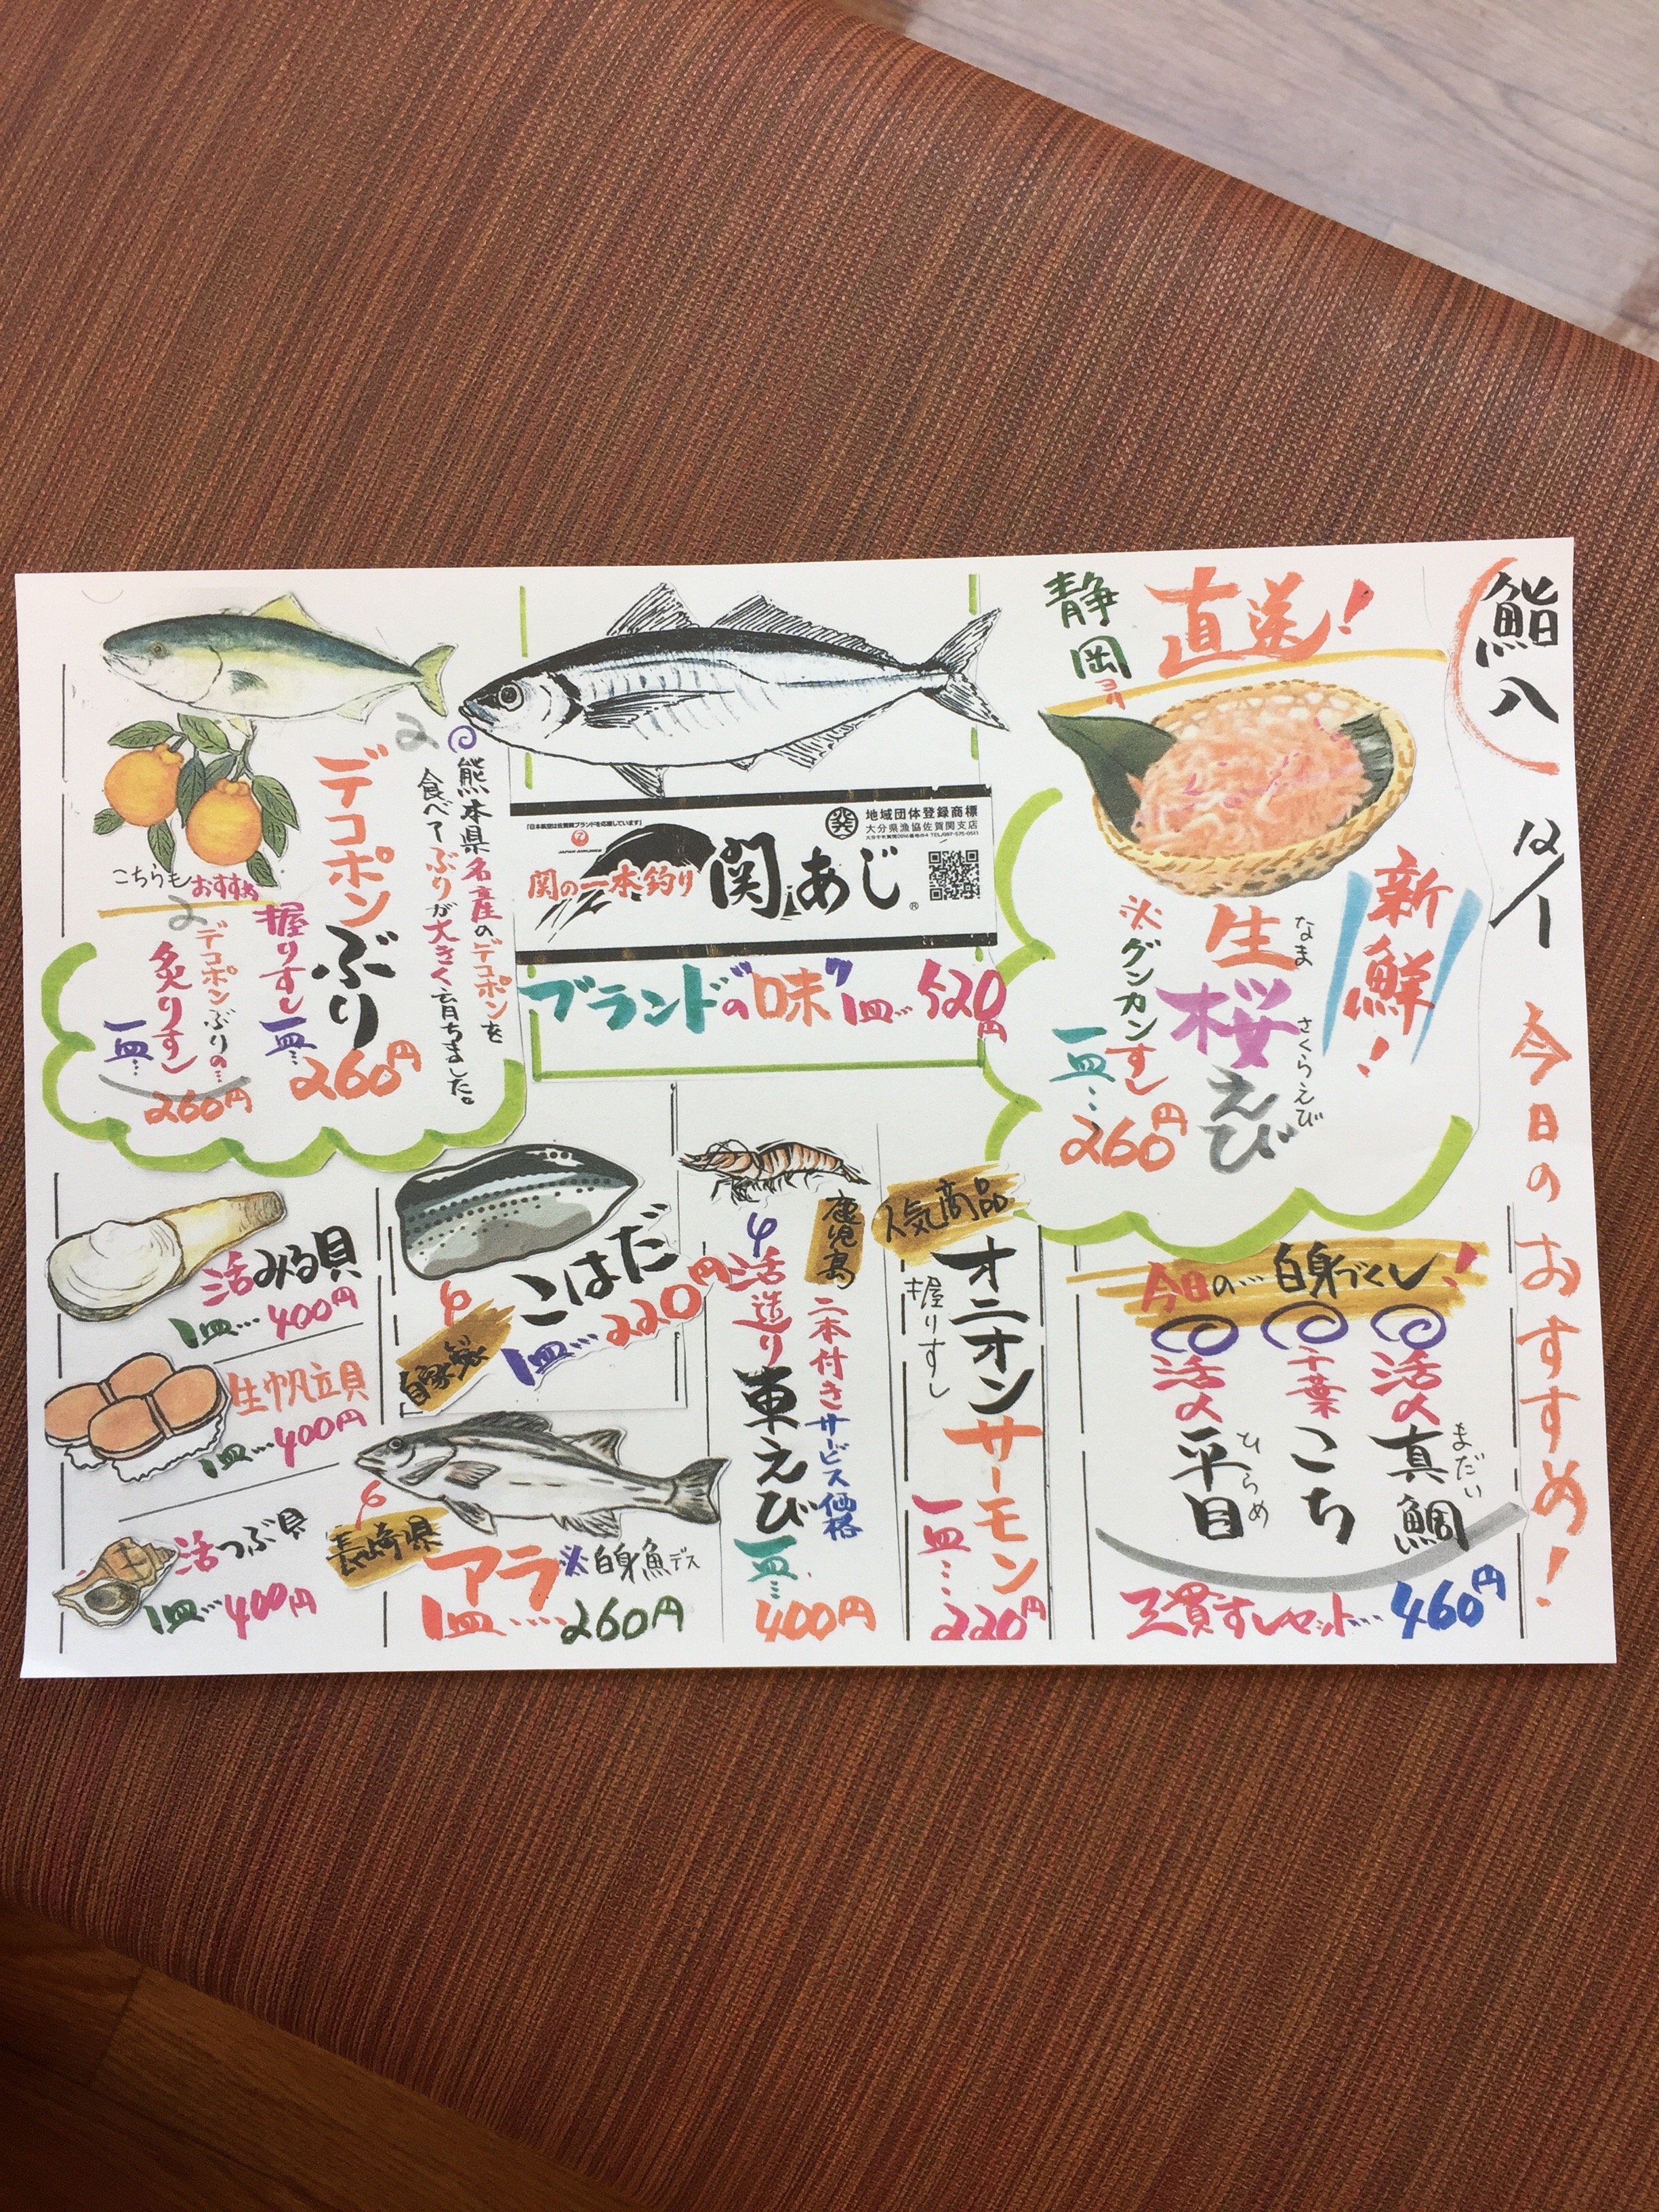 鮨八
12/1
今日のおすすめ!
静岡ヨリ
直送!
新鮮!
なま さくらえび
生桜えび
※グンカンすし
一皿… 260円
地域団体登録商標
大分県漁協佐賀関支店
関の一本釣り
関あじ
ブランドの"味"
1皿… 520円
熊本県名産のデコポンを
食べてぶりが大きく育ちました。
デコポンぶり
握りすし
一皿… 260円
こちらもおすすめ
デコポンぶりの…
炙りすし
一皿… 260円
今日の…白身づくし!
まだい
活〆真鯛
千葉こち
ひらめ
活〆平目
三貫すしセット… 460円
人気商品
オニオンサーモン
握りすし
一皿… 220円
鹿児島
二本付きサービス価格
活造り車えび
一皿… 400円
こはだ
自家製
1皿… 220円
長崎県
アラ
※白身魚デス
1皿… 260円
活みる貝
1皿… 400円
生帆立貝
1皿… 400円
活つぶ貝
1皿… 400円